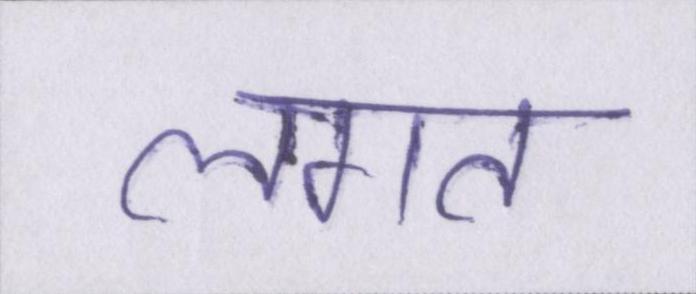 लगत